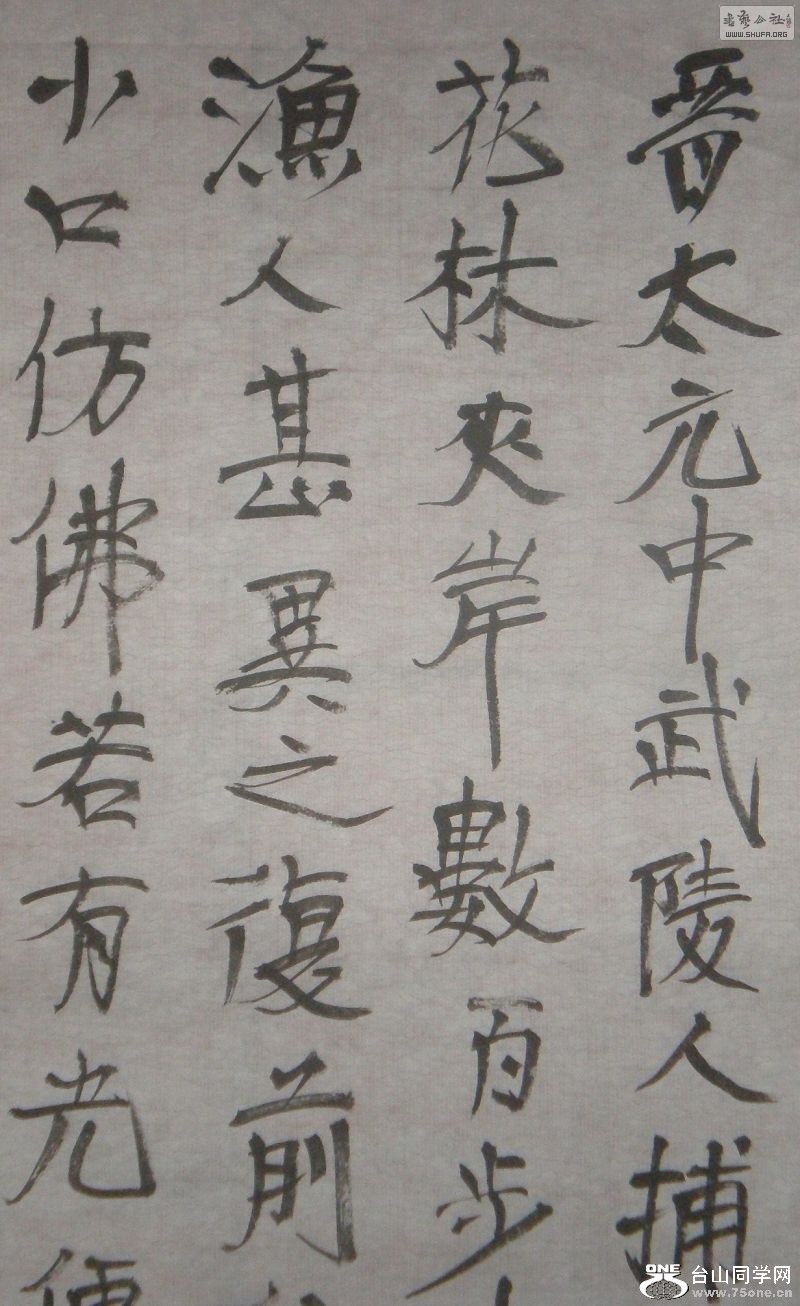 晋太元中武陵人捕
花林夾岸數百步
漁人甚異之復前
小口仿佛若有光便
书艺公社
www.SHUFA.ORG
ONE 台山同学网
www.75one.cn